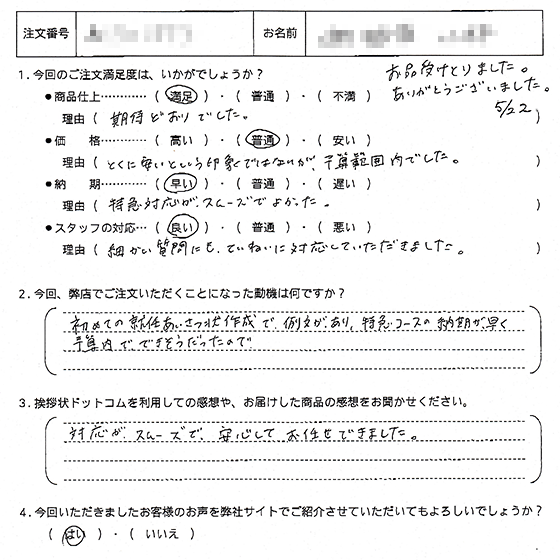 注文番号 お名前
お品受けとりました。
ありがとうございました。
5/22
1.今回のご注文満足度は、いかがでしょうか?
●商品仕上…………( 満足 )・( 普通 )・( 不満 )
理由( 期待どおりでした。 )
●価　格…………( 高い )・( 普通 )・( 安い )
理由( とくに安いという印象ではないが、予算範囲内でした。 )
●納　期…………( 早い )・( 普通 )・( 遅い )
理由( 特急対応がスムーズでよかった。 )
●スタッフの対応…( 良い )・( 普通 )・( 悪い )
理由( 細かい質問にも、ていねいに対応していただきました。 )
2.今回、弊店でご注文いただくことになった動機は何ですか?
初めての就任あいさつ状作成で、例文があり、特急コースの納期が早く
予算内でできそうだったので
3.挨拶状ドットコムを利用しての感想や、お届けした商品の感想をお聞かせください。
対応が、スムーズで、安心してお任せできました。
4.今回いただきましたお客様のお声を弊社サイトでご紹介させていただいてもよろしいでしょうか?
( はい )・( いいえ )